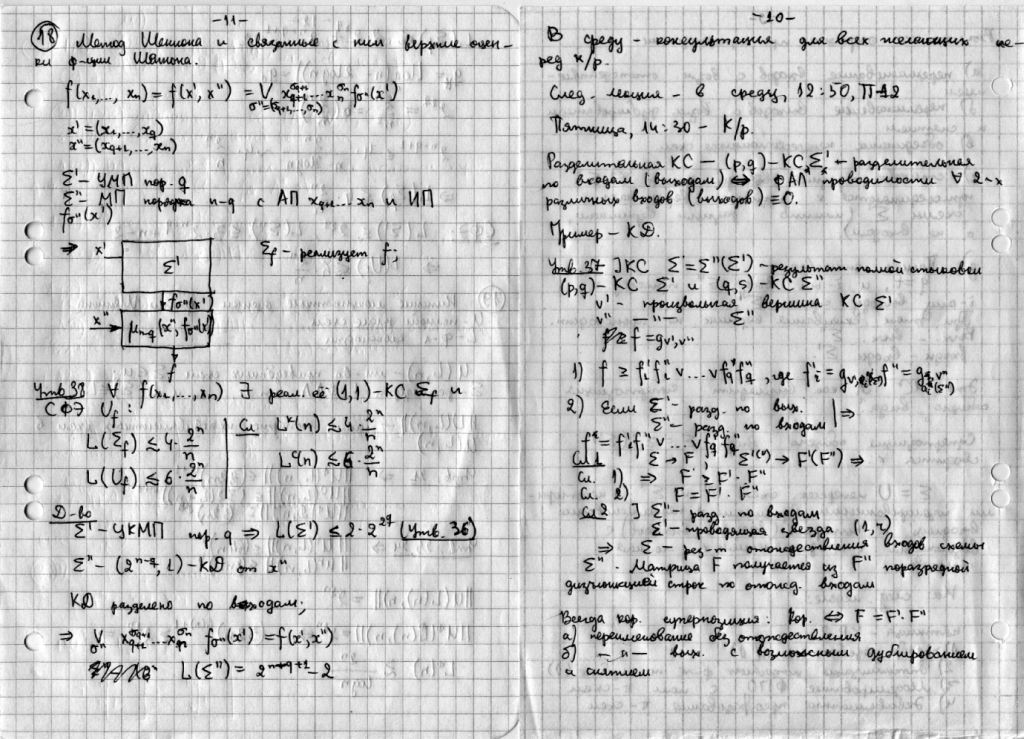 -11-
18 Метод Шеннона и связанные с ним верхние оцен-
ки ф-ции Шеннона.
f(x₁,..., xₙ) = f(x', x'') = ⋁_{σ''=(σ_{q+1},...,σₙ)} x_{q+1}^{σ_{q+1}}...xₙ^{σₙ} f_{σ''}(x')
x' = (x₁,...,x_q)
x'' = (x_{q+1},...,xₙ)
Σ' - УМП пор. q
Σ'' - МП порядка n-q с АП x_{q+1}...xₙ и ИП
f_{σ''}(x')
⇒ x' Σ' Σ_f - реализует f;
f_{σ''}(x')
x'' μ_{n-q}(x'', f_{σ''}(x'))
f
Утв. 38 ∀ f(x₁,...,xₙ) ∃ реал. её (1,1)-КС Σ_f и
СФЭ U_f :
L(Σ_f) ≲ 4·2ⁿ/n Сл. Lᴷ(n) ≲ 4·2ⁿ/n
L(U_f) ≲ 6·2ⁿ/n Lᶜ(n) ≲ 6·2ⁿ/n
Д-во
Σ' - УКМП пор. q ⇒ L(Σ') ≤ 2·2^{2^q} (Утв. 36)
Σ'' - (2^{n-q}, 1)-КД от x''
КД разделено по входам;
⇒ ⋁_{σ''} x_{q+1}^{σ_{q+1}}...xₙ^{σₙ} f_{σ''}(x') = f(x', x'')
L(Σ'') = 2^{n-q+1} - 2
-10-
В среду - консультация для всех желающих пе-
ред к/р.
След. лекция - в среду, 12:50, П-12
Пятница, 14:30 - К/р.
Разделительная КС — (p,q)-КС Σ' - разделительная
по входам (выходам) ⇔ ФАЛ проводимости ∀ 2-х
различных входов (выходов) ≡ 0.
Пример - КД.
Утв. 37 ] КС Σ = Σ''(Σ') - результат полной стыковки
(p,q)-КС Σ' и (q,s)-КС Σ''
v' - произвольная вершина КС Σ'
v'' - —"— Σ''
f = g_{v',v''}
1) f ≥ f'₁f''₁ ∨ ... ∨ f'_q f''_q, где f'ᵢ = g_{v',aᵢ(Σ')} f'' = g_{aᵢ(Σ''),v''}
2) Если Σ' - разд. по вых. | ⇒
Σ'' - разд. по входам
f = f'₁f''₁ ∨ ... ∨ f'_q f''_q
Сл. 1 Σ → F, Σ'('') → F'(F'') ⇒
Сл. 1) ⇒ F ≥ F'·F''
Сл. 2) F = F'·F''
Сл 2 ] Σ'' - разд. по входам
Σ' - проводящая звезда (1,r)
⇒ Σ - рез-т отождествления входов схемы
Σ''. Матрица F получается из F'' поразрядной
дизъюнкцией строк по отожд. входам
Всегда кор. суперпозиция: Кор. ⇔ F = F'·F''
а) переименование без отождествления
б) —"— вых. с возможным дублированием
и снятием